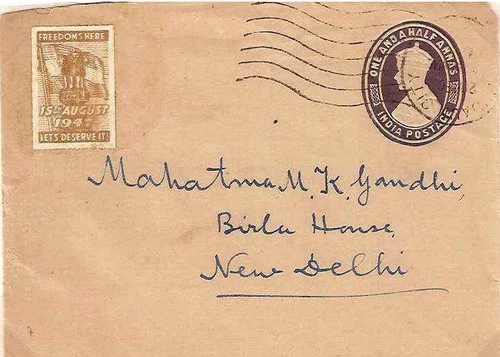 FREEDOM IS HERE
15TH AUGUST
1947
LET'S DESERVE IT!
ONE AND A HALF ANNAS
INDIA POSTAGE
Mahatma M. K. Gandhi,
Birla House,
New Delhi